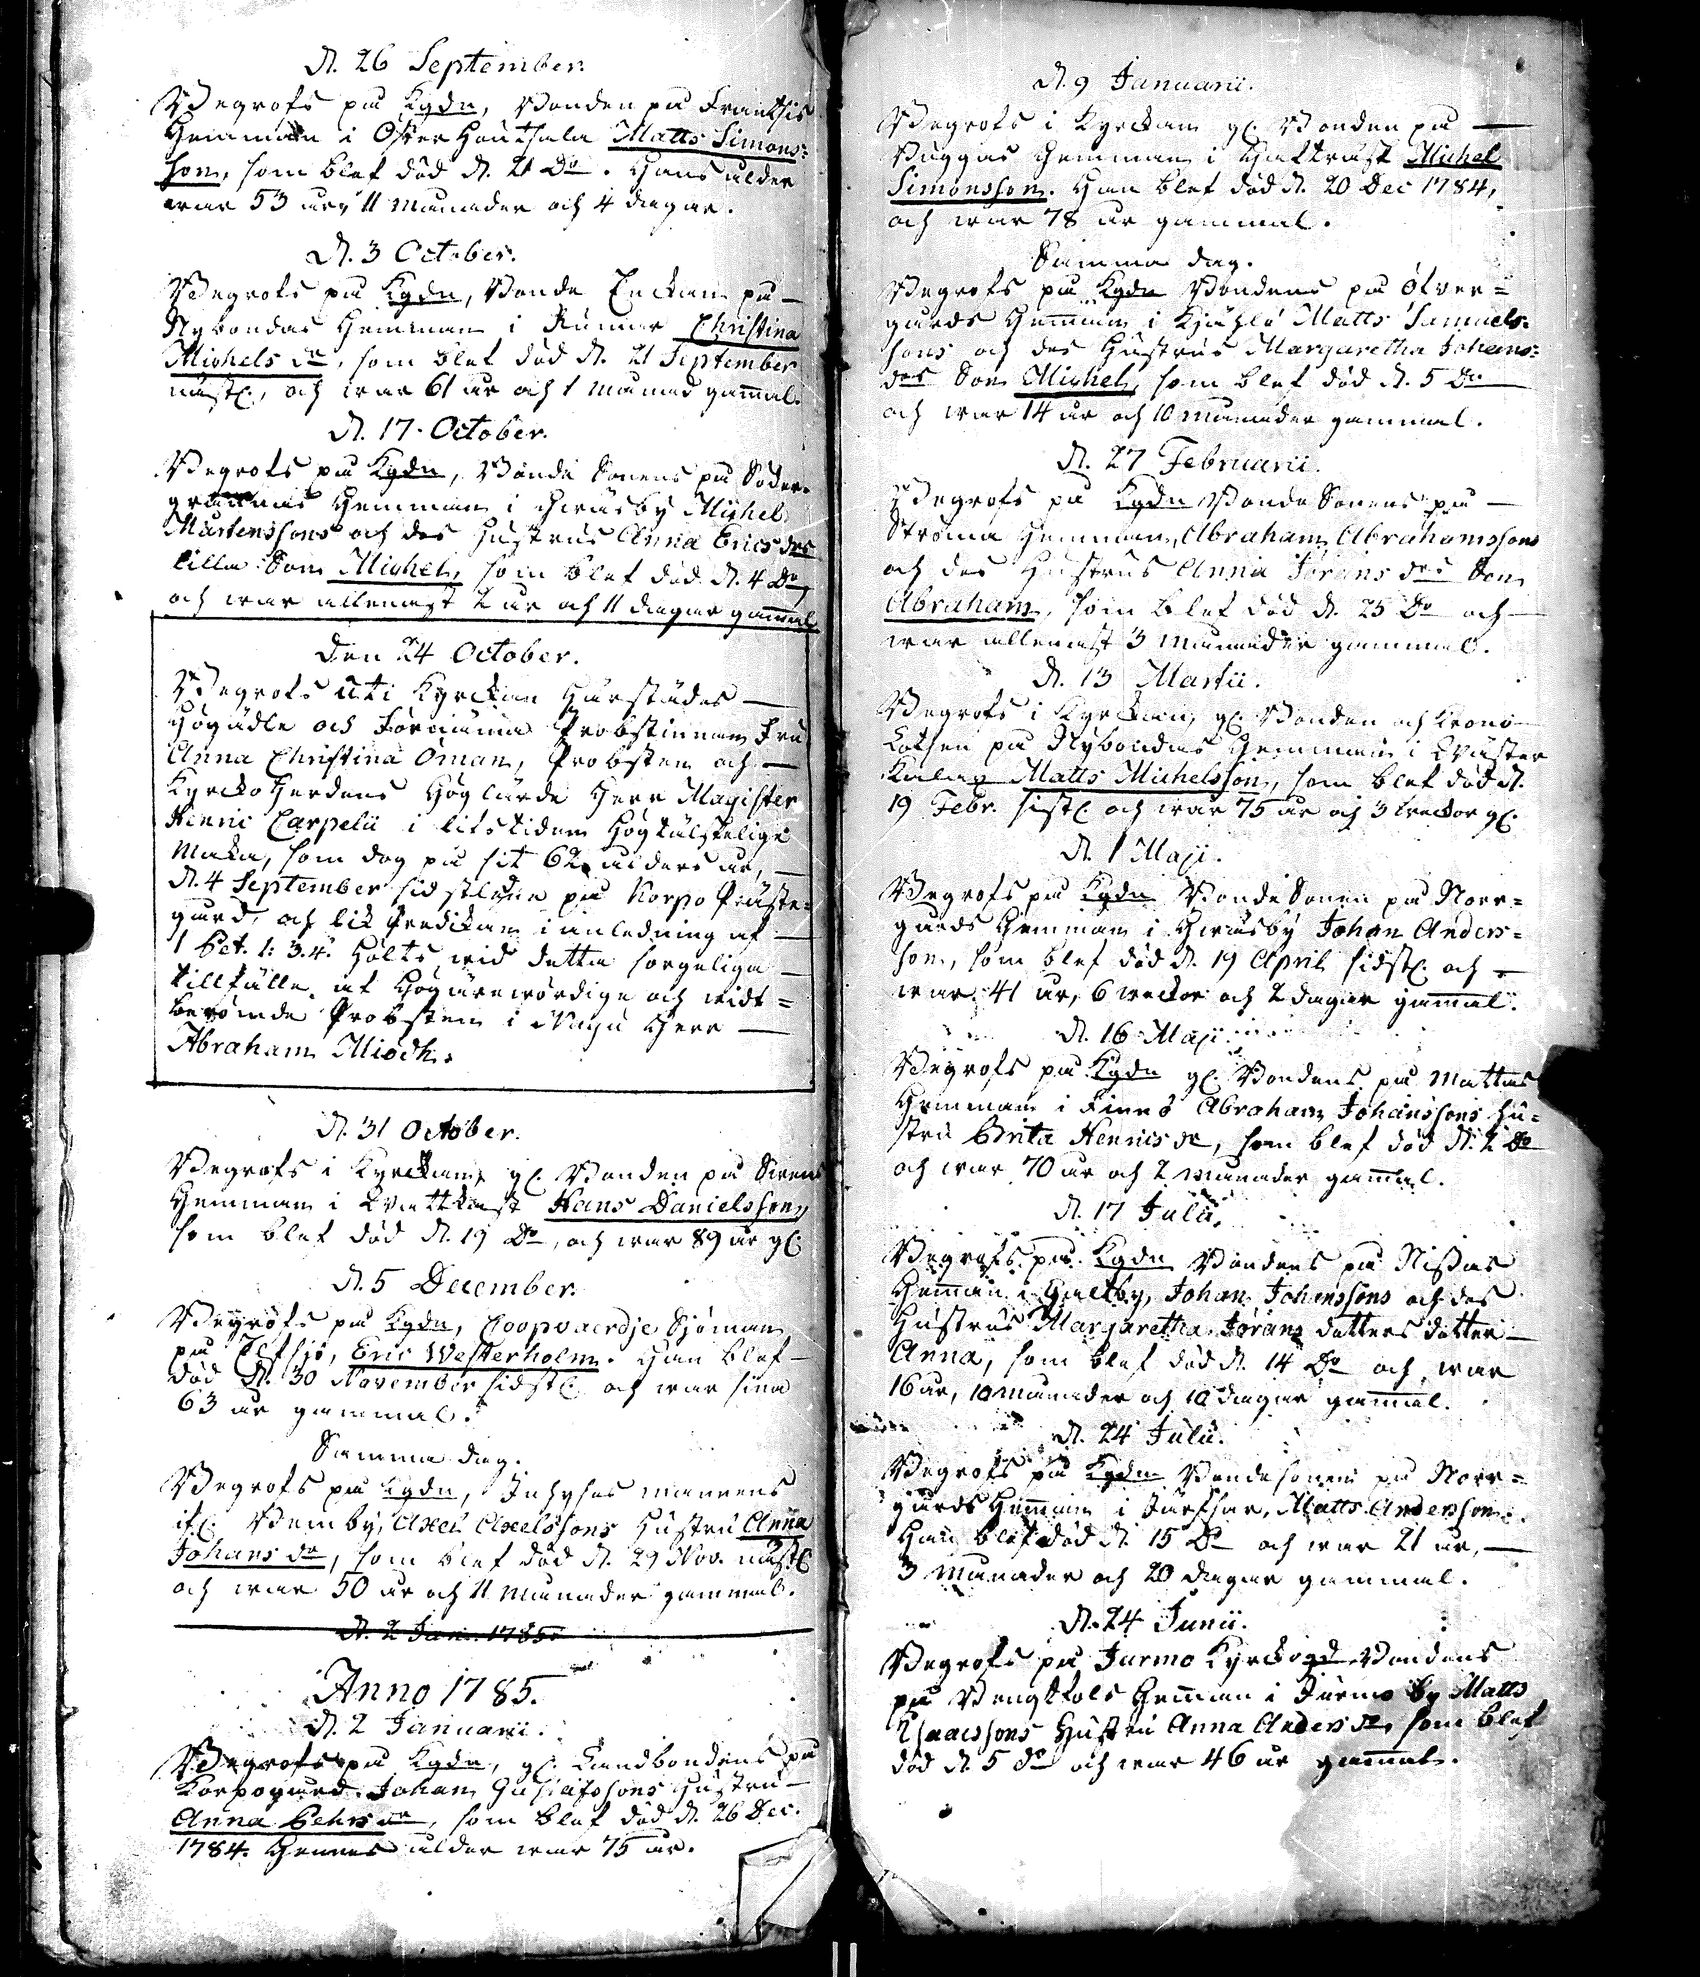 D. 26 September.
Begrofs på Kgdn, Bonden på Frantsis
Hemman i Öster Houtskala Matts Simons=
son, som blef död d. 21 Do. Hans ålder
war 53 år, 11 månader och 4 dagar.
D. 3 October.
Begrofs på Kgdn, Bonde Enckan på –
Nybondas Hemman i Rumar Christina
Michels dr, som blef död d. 21 September
näst., och war 61 år och 1 månad gamal.
D. 17. October.
Begrofs på Kgdn, Bonde Sonens på Söder-
Hemman i Michel
Mårtenssons och des Hustrus Anna Erics drs
lilla Son Michel, som blef död d. 4 Do
och war allenast 2 år och 11 dagar gamal
Den 24 October.
Begrofs uti Kyrckan härstädes –
Högädle och Förnäma Probstinnan Fru
Anna Christina Öman, Probsten och –
Kyrcko Herdens Höglärde Herr Magister
Henric Carpelii i lifstiden Högtälskelige
Maka, som dog på sit 62 ålders år, –
d. 4 September sidstledne på Korpo Präste=
gård, och lik Predikan i anledning af –
1 Pet. 1: 3.4. hölts wid detta sorgeliga –
tillfälle af Högärewördige och widt=
berömde Probsten i Nagu Herr –
Abraham Miödh.
D. 31 October.
Begrofs i Kyrckan, gl. Bonden på
Hemman i Hans Danielsson,
som blef död d. 19 Do, och war 89 år gl.
D. 5 December.
Begrofs på Kgdn, Coopvaerdje Sjöman
på Elfsjö, Eric Westerholm. Han blef –
död d. 30 November sidstl. och war sina
63 år gammal.
Samma dag.
Begrofs på Kgdn, Inhyses mannens
ifr. Wemby, Axel Axelssons Hustru Anna
Johans dr, som blef död d. 29 Nov. näst.
och war 50 år och 11 månader gammal.
D. 2 Jan. 1785
Anno 1785.
D. 2 Januarii.
Begrofs på Kgdn, gl. Landbondens på
Korpogård Johan Gustafssons Hustru –
Anna Pehrs dr, som blef död d. 26 Dec.
1784. Hennes ålder war 75 år.
D. 9 Januarii.
Begrofs i Kyrckan gl. Bonden på –
Buggas Hemman i Michel
Simonsson. Han blef död d. 20 Dec 1784,
och war 78 år gammal.
Samma dag.
Begrofs på Kgdn Bondens på Öfver=
gårds Hemman i Matts Samuels-
sons och des Hustrus Margaretha Johans=
drs Son Michel, som blef död d. 5 Do
och war 14 år och 10 månader gammal.
D. 27 Februarii.
Begrofs på Kgdn Bonde Sonens på –
Ströma Hemman, Abraham Abrahamssons
och des Hustrus Anna Jörans drs Son
Abraham, som blef död d. 25 Do och –
war allenast 3 månader gammal.
D. 13 Martii.
Begrofs i Kyrckan, gl. Bonden och Krono
Lotsen på Nybondas Hemman i Wäster
Matts Michelsson, som blef död d.
19 Febr. sistl. och war 75 år och 3 weckor gl.
D. 1 Maji.
Begrofs på Kgdn Bonde Sonen på Norr=
gårds Hemman i Johan Anders=
son, som blef död d. 19 April sidstl. och –
war 41 år, 6 weckor och 2 dagar gamal.
D. 16 Maji.
Begrofs på Kgdn gl. Bondens på Mattas
Hemman i Finnö Abraham Johanssons Hu=
stru Brita Henrics dr, som blef död d. 2 Do
och war 70 år och 2 månader gamal.
D. 17 Julii.
Begrofs på Kgdn Bondens på Nissas
Heman i Galtby, Johan Johanssons och des
Hustrus Margaretha Jörans dotters dotter –
Anna, som blef död d. 14 Do och war
16 år, 10 månader och 10 dagar gamal.
D. 24 Julii.
Begrofs på Kgdn Bonde sonen på Norr=
gårds Heman i Matts Andersson.
Han blef död d. 15 Do och war 21 år, –
3 månader och 20 dagar gammal.
D. 24 Junii.
Begrofs på Jurmo Kyrckogd Bondens
på Heman i Jurmo by Matts
Isaacssons Hustru Anna Anders dr, som blef
död d. 5 do och war 46 år gamal.